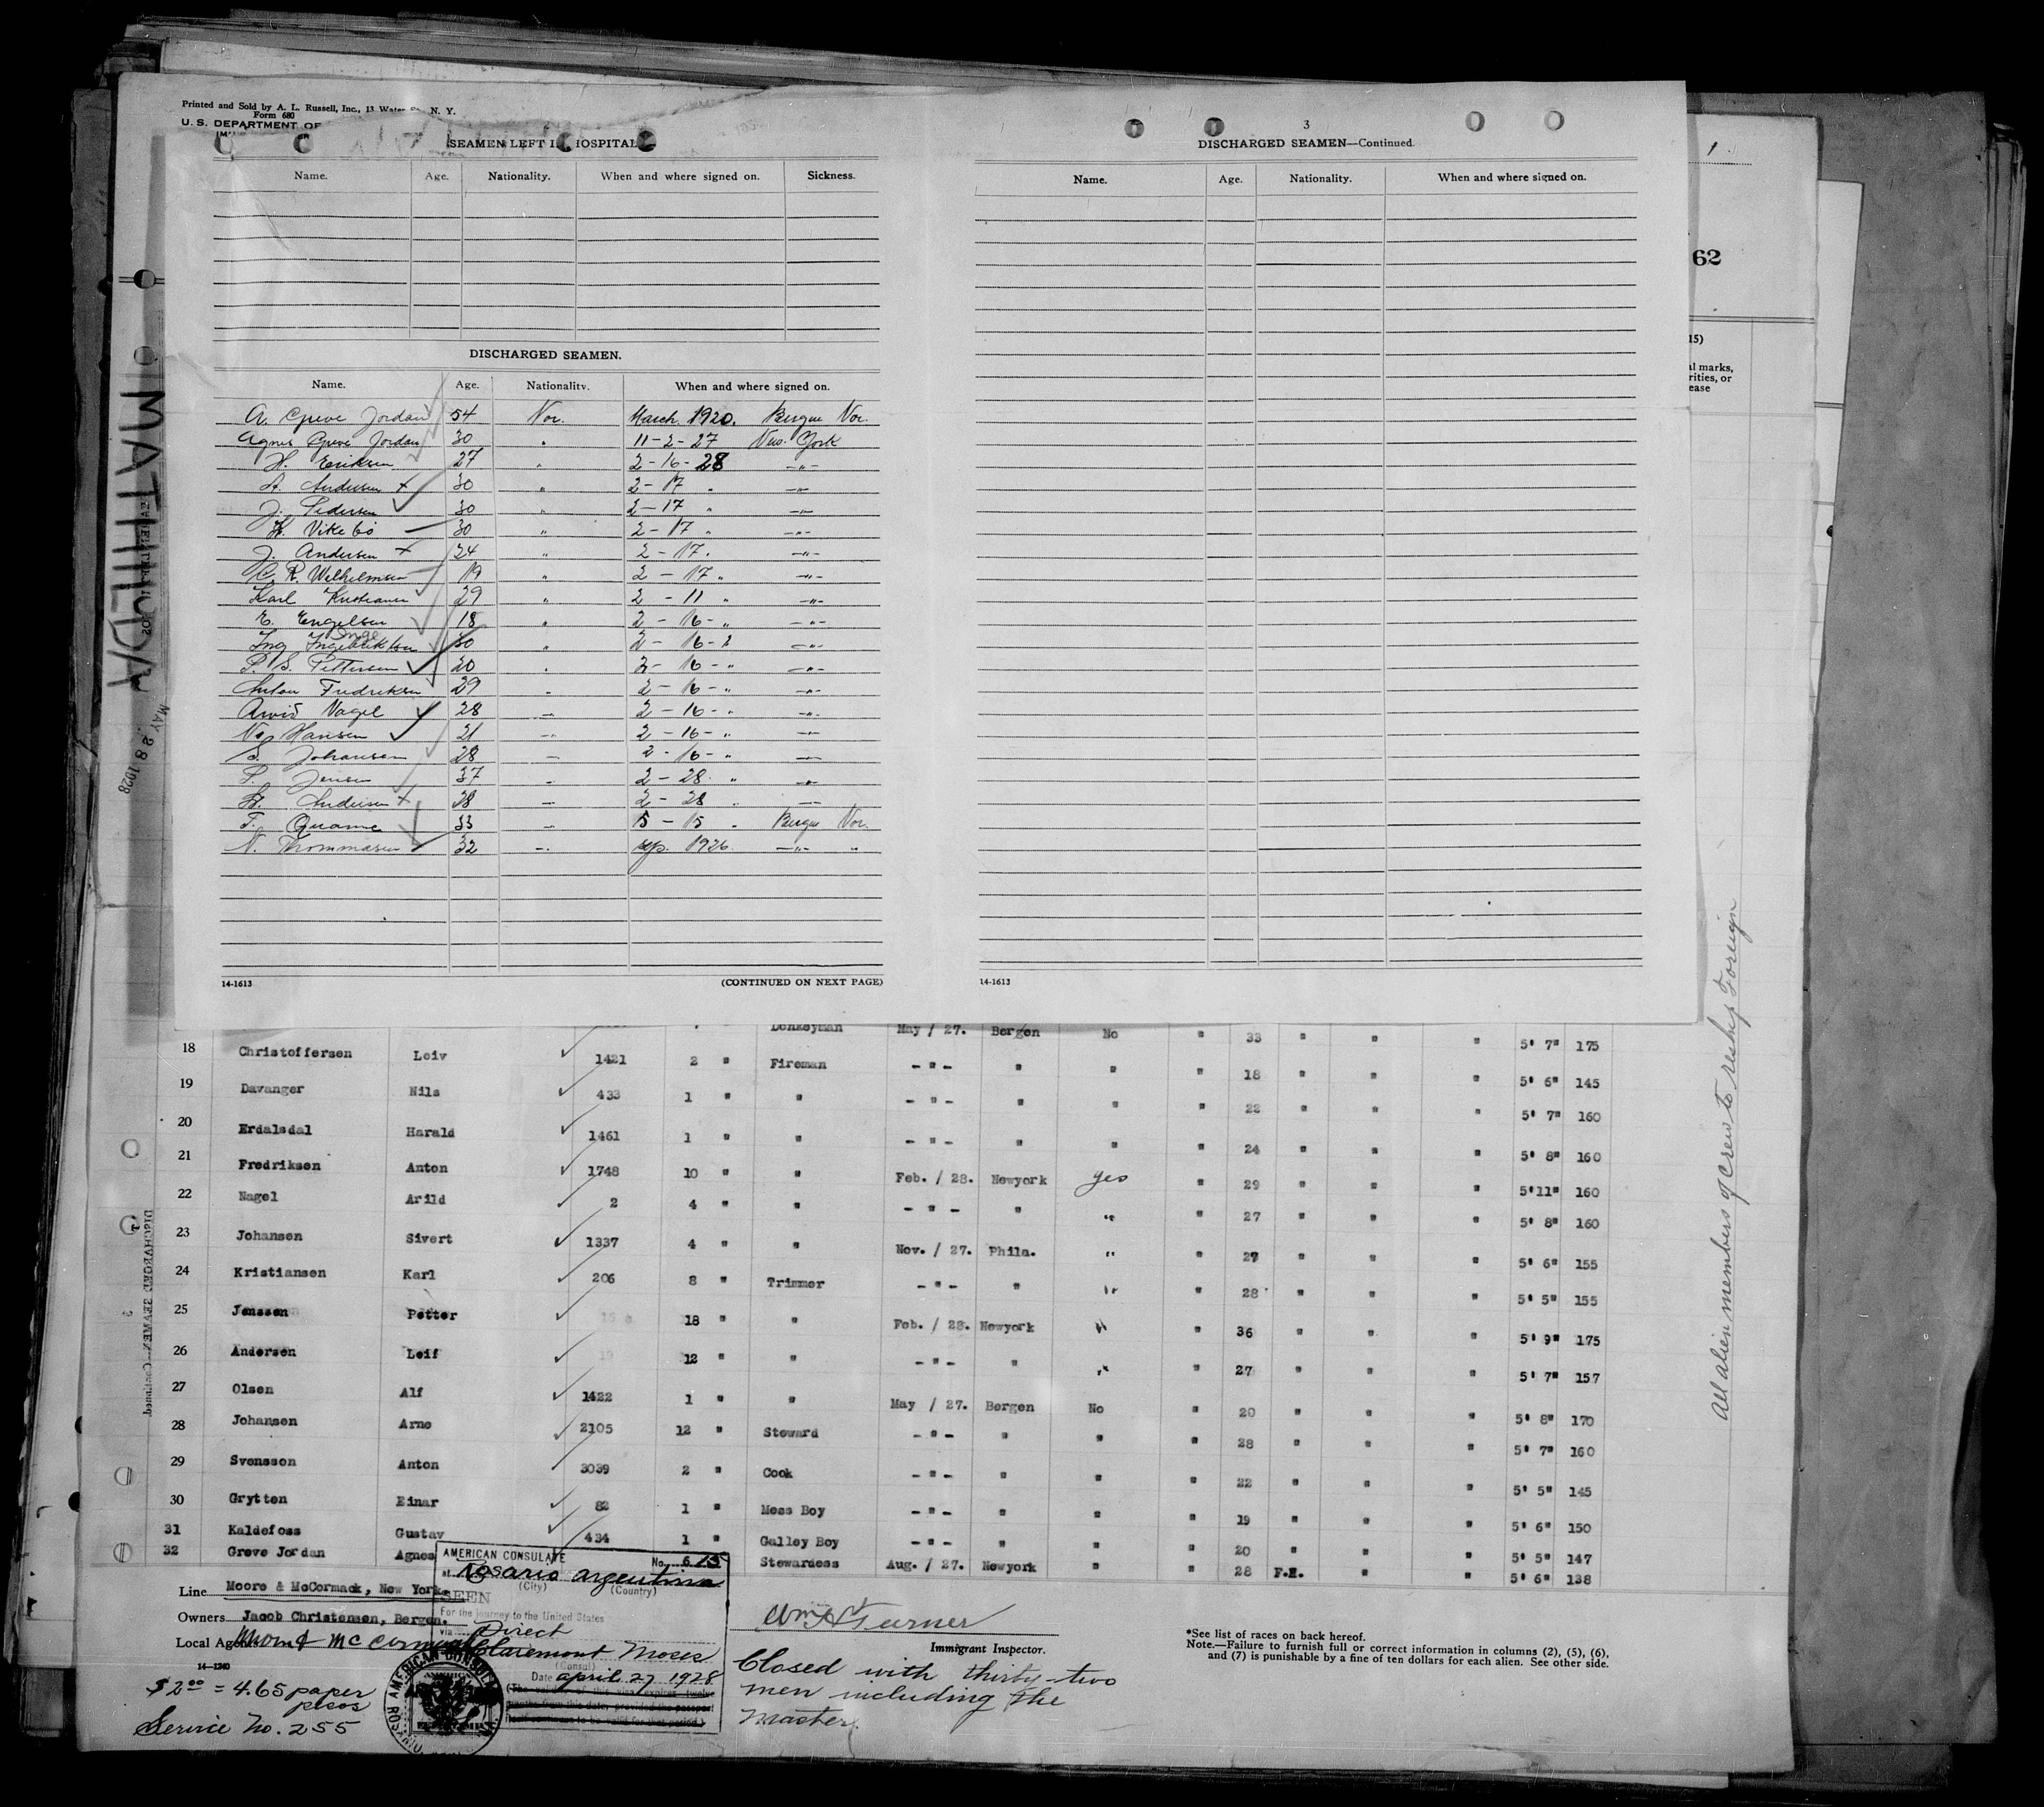 Printed and Sold by A. L. Russell, Inc., 13 Water St., N. Y.
Form 680
U. S. DEPARTMENT OF
2
SEAMEN LEFT IN HOSPITAL
Name. Age. Nationality. When and where signed on. Sickness.
DISCHARGED SEAMEN.
Name. Age. Nationality. When and where signed on.
A. Greve Jordan 54 Nor. March 1920. Bergen Nor.
Agnes Greve Jordan 30 " 11-2-27 New York
H. Eriksen 27 " 2-16-28 -"-
A. Andersen + 30 " 2-17 " -"-
J. Pedersen 30 " 2-17 " -"-
H. Vikebö 30 " 2-17 " -"-
J. Andersen + 24 " 2-17 " -"-
C. R. Wilhelmsen 19 " 2-17 " -"-
Karl Kristiansen 29 " 2-11 " -"-
E. Engelsen 18 " 2-16-" -"-
Inge
Ing Ingebriktsen 30 " 2-16-" -"-
P. S. Pettersen 20 " 2-16-" -"-
Anton Fredriksen 29 " 2-16-" -"-
Arvid Nagel 28 -"- 2-16-" -"-
Hansen 21 -"- 2-16-" -"-
S. Johansen 28 -"- 2-16-" -"-
P. Jensen 37 -"- 2-28 " -"-
Andersen + 28 -"- 2-28 " -"-
T. Quamme 33 -"- 5-15 " Bergen Nor.
N. Thommasen 32 -"- Sep. 1926 -"- "
14-1613 (CONTINUED ON NEXT PAGE)
3
DISCHARGED SEAMEN—Continued.
Name. Age. Nationality. When and where signed on.
14-1613
1
62
15)
al marks,
rities, or
ease
MATHILDA
MAY 28 1928
DISCHARGED SEAMEN—Continued.
3
All alien members of crew to reship Foreign
Donkeyman May / 27. Bergen No " 33 " " " 5' 7" 175
18 Christoffersen Leiv 1421 2 " Fireman -"- " " " 18 " " " 5' 6" 145
19 Davanger Nils 433 1 " " -"- " " " 22 " " " 5' 7" 160
20 Erdalsdal Harald 1461 1 " " -"- " " " 24 " " " 5' 8" 160
21 Fredriksen Anton 1748 10 " " Feb. / 28. Newyork yes " 29 " " " 5'11" 160
22 Nagel Arild 2 4 " " -"- " " " 27 " " " 5' 8" 160
23 Johansen Sivert 1337 4 " " Nov. / 27. Phila. " " 27 " " " 5' 6" 155
24 Kristiansen Karl 206 8 " Trimmer -"- " " " 28 " " " 5' 5" 155
25 Jenssen Petter 18 " " Feb. / 28. Newyork " " 36 " " " 5' 9" 175
26 Andersen Leif 12 " " -"- " " " 27 " " " 5' 7" 157
27 Olsen Alf 1422 1 " " May / 27. Bergen No " 20 " " " 5' 8" 170
28 Johansen Arne 2105 12 " Steward -"- " " " 28 " " " 5' 7" 160
29 Svensson Anton 3039 2 " Cook -"- " " " 22 " " " 5' 5" 145
30 Grytten Einar 82 1 " Mess Boy -"- " " " 19 " " " 5' 6" 150
31 Kaldefoss Gustav 434 1 " Galley Boy -"- " " " 20 " " " 5' 5" 147
32 Greve Jordan Agnes Stewardess Aug. / 27. Newyork " " 28 F.E. " " 5' 6" 138
Line Moore & McCormack, New York.
Owners Jacob Christensen, Bergen.
Local Agents Moore & McCormack
14-1240
$2.00 = 4.65 paper
pesos
Service No. 255
AMERICAN CONSULATE No. 615
at Rosario Argentina
(City) (Country)
SEEN
For the journey to the United States
via Direct
Claremont Moses
(Consul)
Date April 27 1928
(The validity of this visa expires twelve
months from this date, provided the passport
itself continues to be valid for that period.)
AMERICAN CONSULATE
ROSARIO
Wm H Turner
Immigrant Inspector.
Closed with thirty-two
men including the
Master.
*See list of races on back hereof.
Note.—Failure to furnish full or correct information in columns (2), (5), (6),
and (7) is punishable by a fine of ten dollars for each alien. See other side.